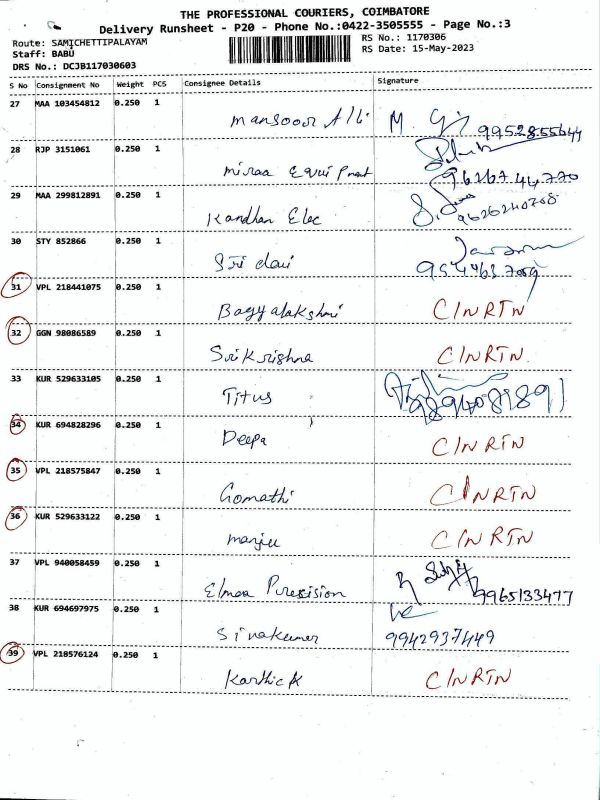 THE PROFESSIONAL COURIERS, COIMBATORE
Delivery Runsheet - P20 - Phone No.:0422-3505555 - Page No.:3
Route: SAMICHETTIPALAYAM RS No.: 1170306
Staff: BABU RS Date: 15-May-2023
DRS No.: DCJB117030603
S No Consignment No Weight PCS Consignee Details Signature
27 MAA 103454812 0.250 1
mansoor Alli 9952855644
28 RJP 3151061 0.250 1
9626744770
29 MAA 299812891 0.250 1
Kandhan Elec 9626240708
30 STY 852866 0.250 1
Sri devi
31 VPL 218441075 0.250 1
Bagyalakshmi C/NRTN
32 GGN 98086589 0.250 1
Srikrishna C/NRTN
33 KUR 529633105 0.250 1
Titus 9894081891
34 KUR 694828296 0.250 1
Deepa C/NRTN
35 VPL 218575847 0.250 1
Gomathi C/NRTN
36 KUR 529633122 0.250 1
manju C/NRTN
37 VPL 940058459 0.250 1
Elmaa Precision 9965133477
38 KUR 694697975 0.250 1
Sivakumar 9942937449
39 VPL 218576124 0.250 1
Karthick C/NRTN